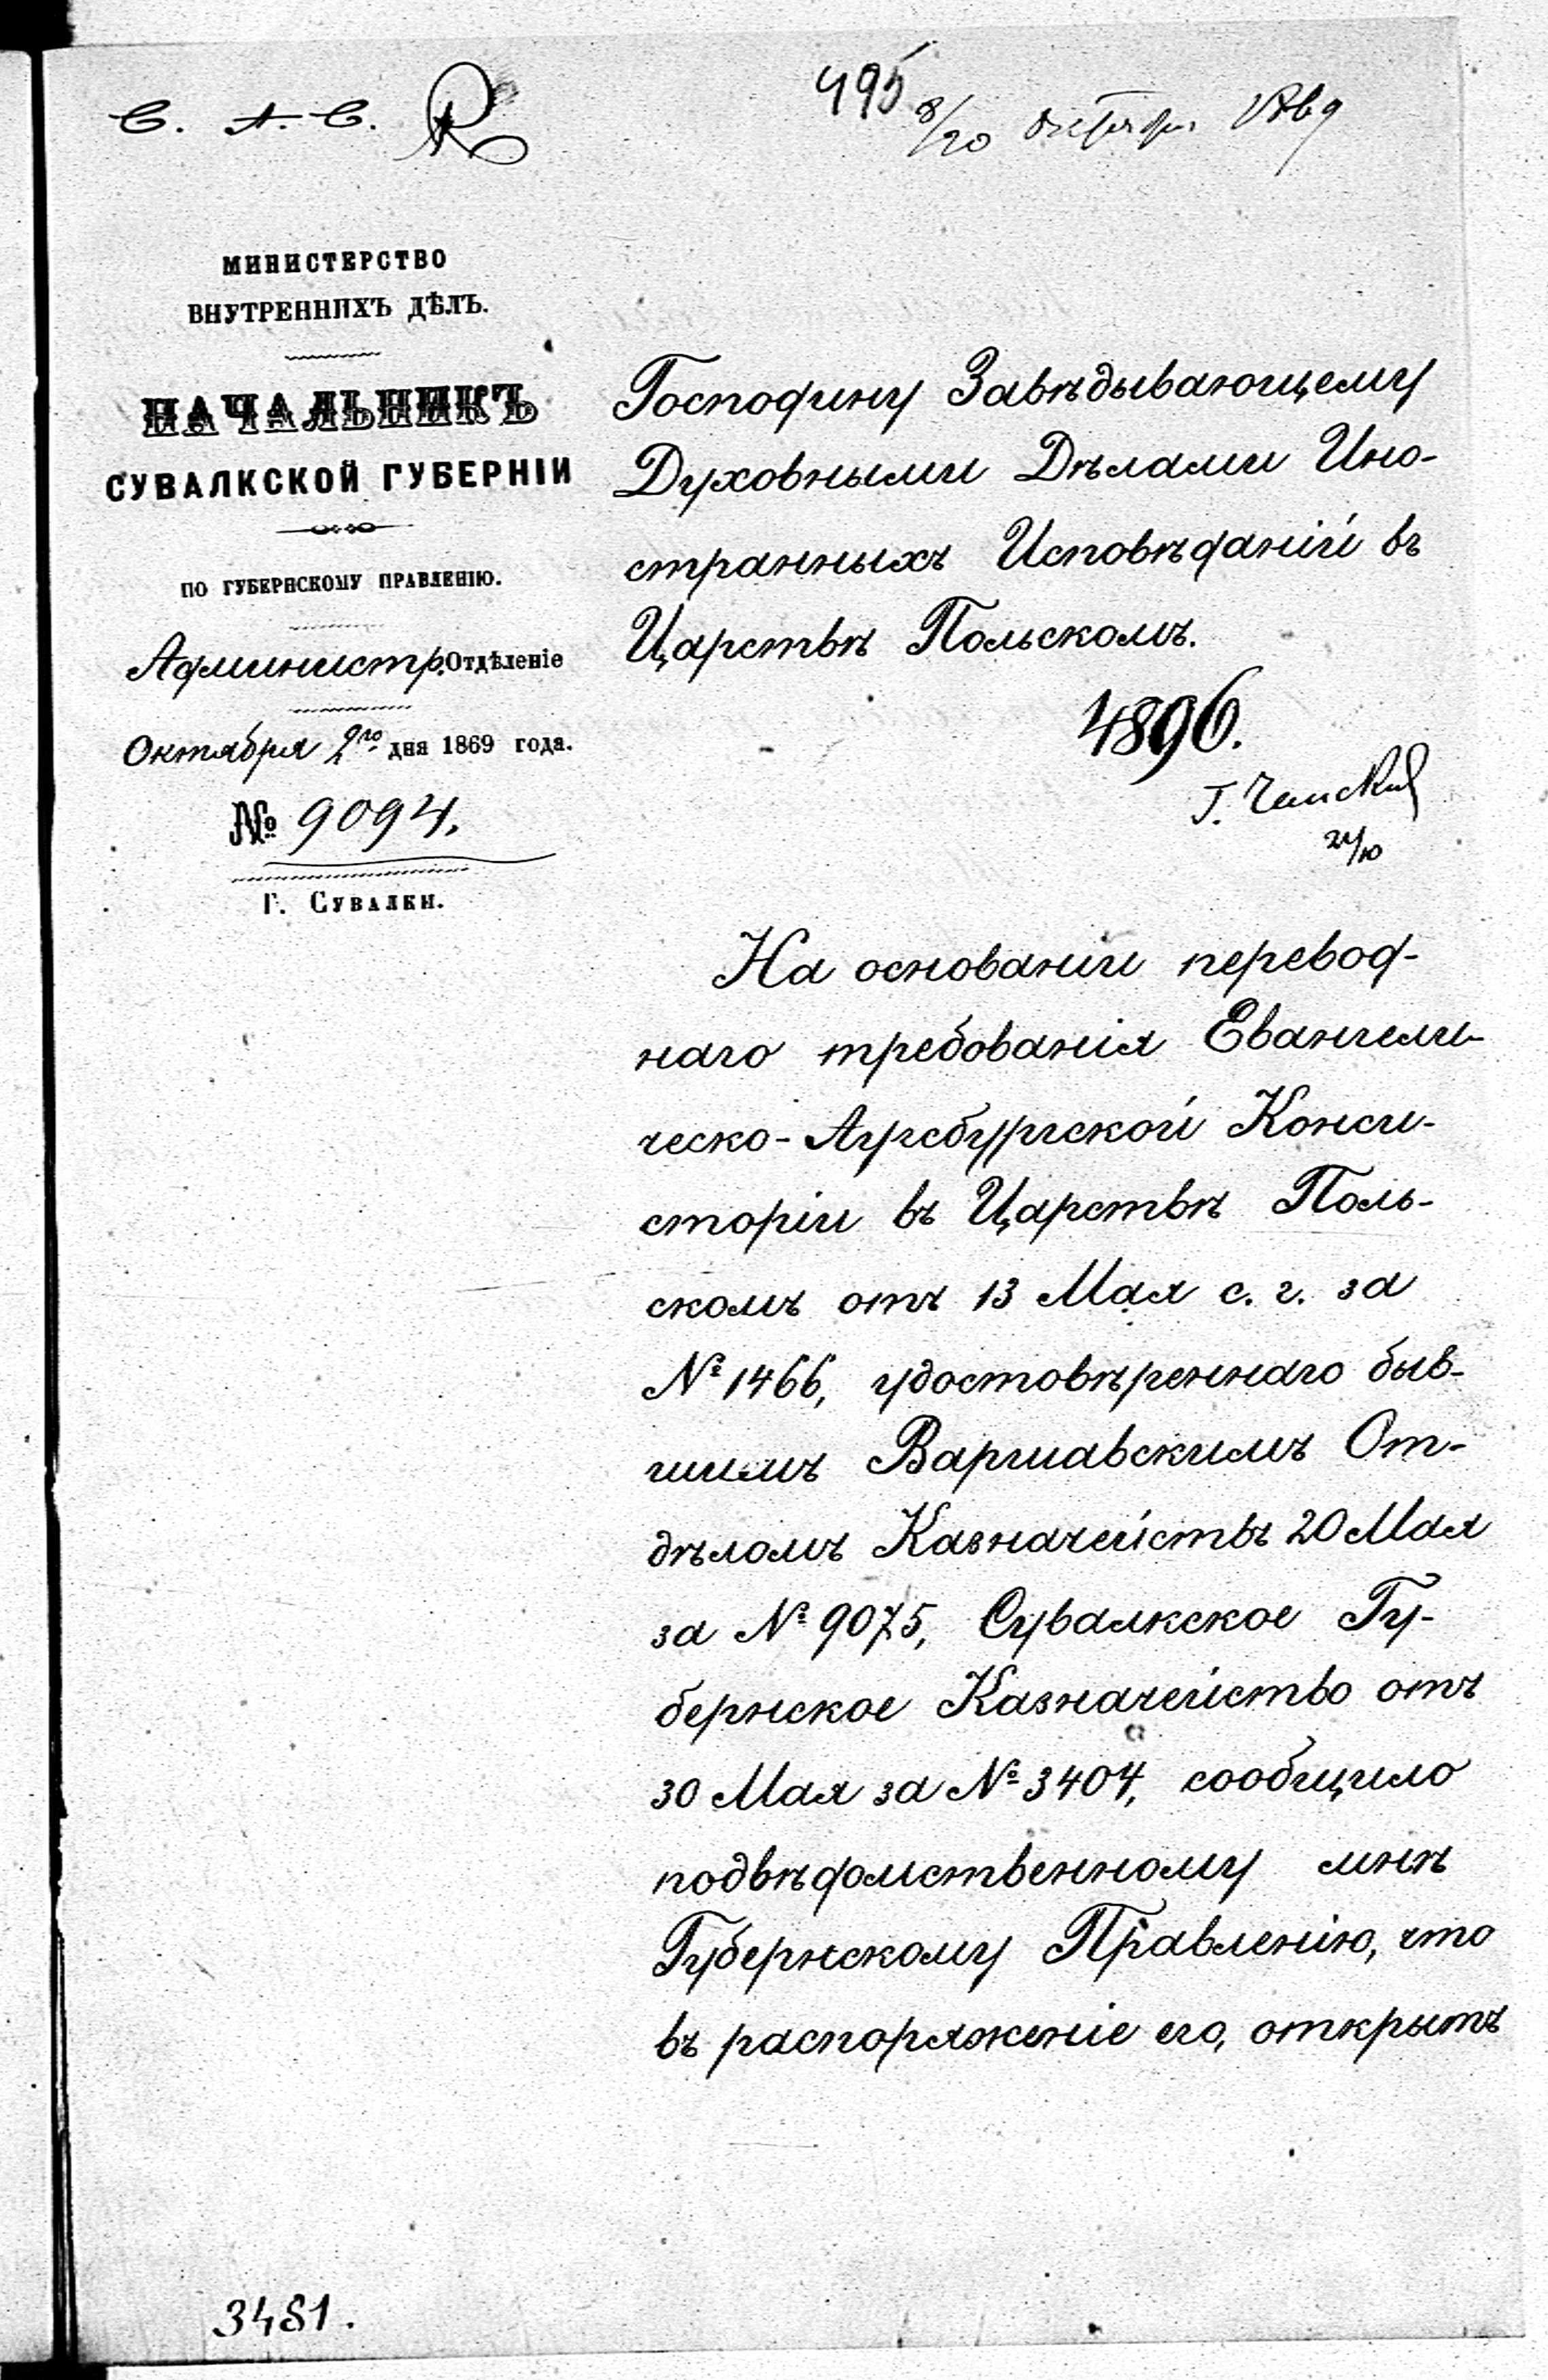 С. А. С.
495
8/20 октября 1869
МИНИСТЕРСТВО
ВНУТРЕННИХЪ ДѢЛЪ.
НАЧАЛЬНИКЪ
СУВАЛКСКОЙ ГУБЕРНІИ
ПО ГУБЕРНСКОМУ ПРАВЛЕНІЮ.
Администр. Отдѣленіе
Октября 2го дня 1869 года.
№ 9094.
Г. Сувалки.
Господину Завѣдывающему
Духовными Дѣлами Ино-
странныхъ Исповѣданій въ
Царствѣ Польскомъ.
4896.
Г.
24/10
На основаніи перевод-
наго требованія Евангели-
ческо-Аугсбургской Конси-
сторіи въ Царствѣ Поль-
скомъ отъ 13 Мая с. г. за
№ 1466, удостовѣреннаго быв-
шимъ Варшавскимъ От-
дѣломъ Казначействъ 20 Мая
за № 9075, Сувалкское Гу-
бернское Казначейство отъ
30 Мая за № 3404, сообщило
подвѣдомственному мнѣ
Губернскому Правленію, что
въ распоряженіе его, открытъ
3481.